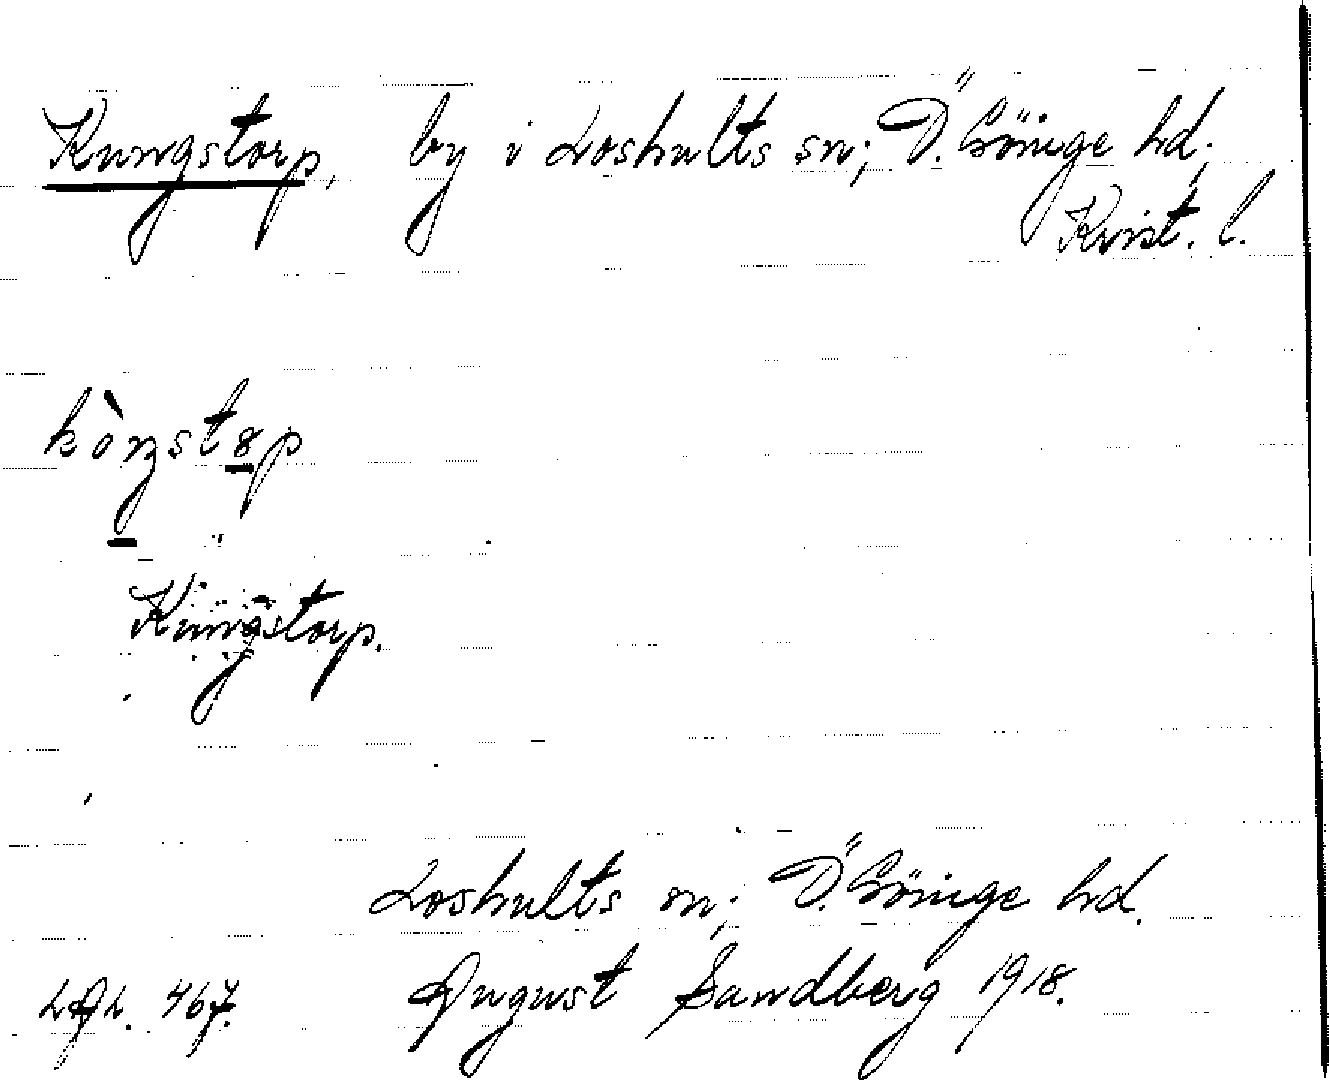 Kungstorp, by i Loshults sn; Ö. Göinge hd;
Krist. l.
Kungstorp.
Loshults sn; Ö. Göinge hd.
August Sandberg 1918.
467.